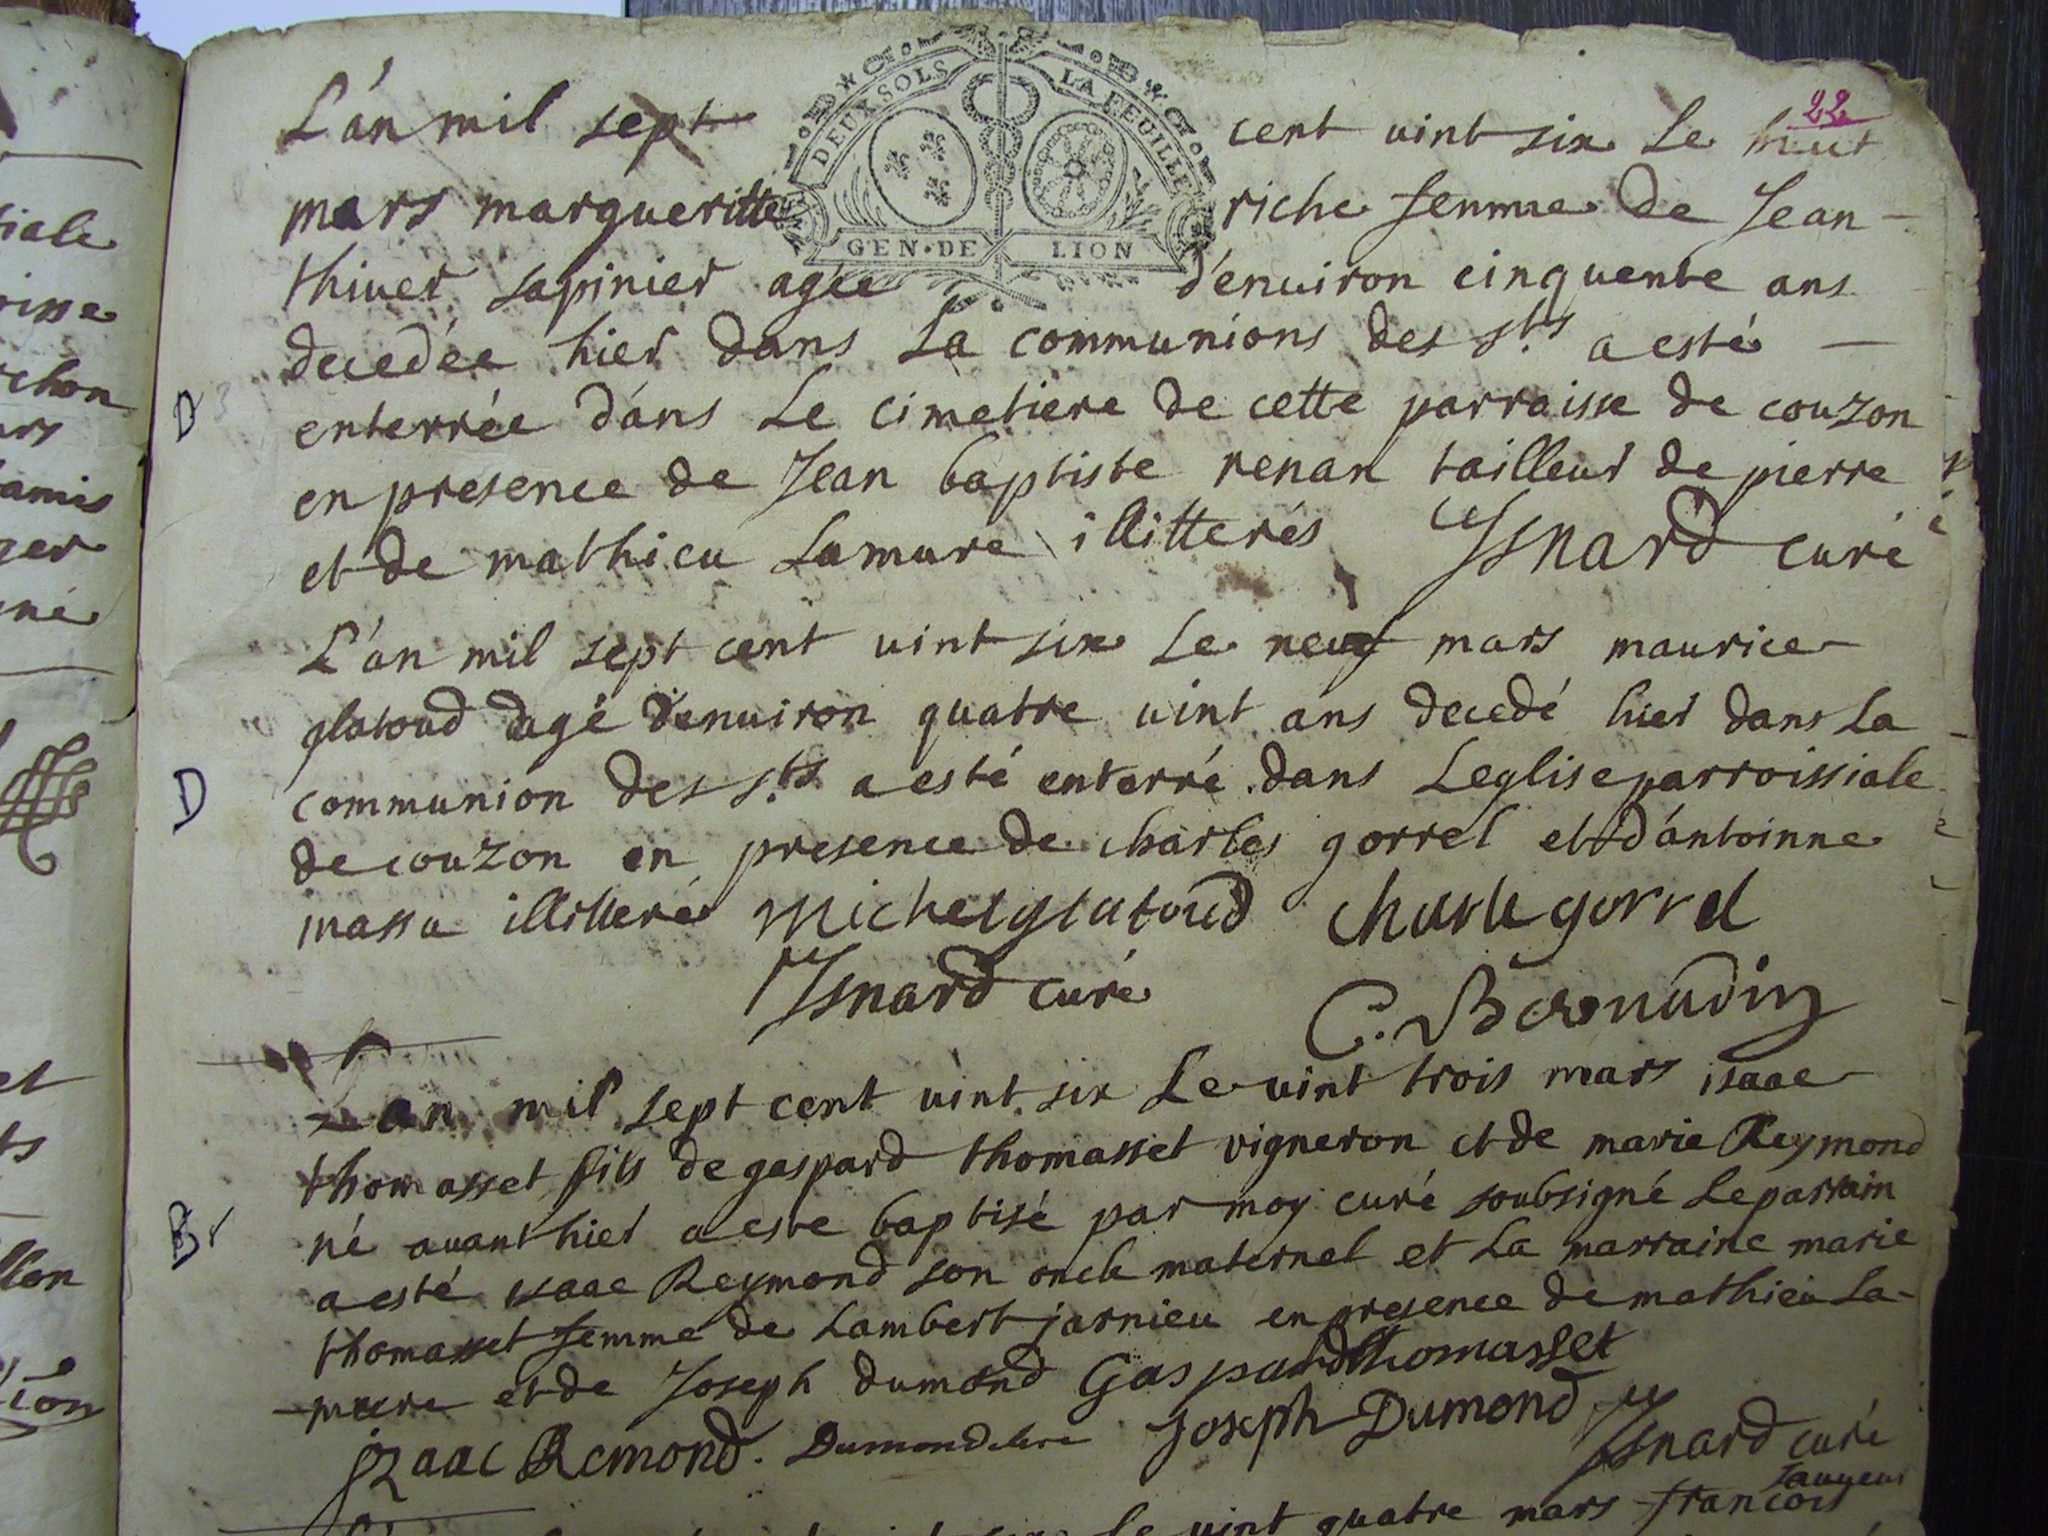 22
DEUX SOLS LA FEUILLE
GEN · DE LION
L'an mil sept cent vint six Le huit
mars margueritte riche femme de Jean
thiver sapinier agée d'environ cinquente ans
decedée hier dans La communions des S.ts a esté
D
enterrée dans Le cimetiere de cette parroisse de couzon
en presence de Jean baptiste renan tailleur de pierre
et de mathieu Lamure illitterés Isnard curé
L'an mil sept cent vint six Le neuf mars maurice
glatoud agé d'environ quatre vint ans decedé hier dans La
D
communion des S.ts a esté enterré dans Leglise parroissiale
de couzon en presence de charles gorrel et d'antoinne
massu illitteré michel glatoud charle gorrel
Isnard curé
C. Bernudin
Lan mil sept cent vint six Le vint trois mars isaac
thomasset fils de gaspard thomasset vigneron et de marie Reymond
B
né avant hier a este baptisé par moy curé soubsigné Le parrain
a esté isaac Reymond son oncle maternel et La marraine marie
thomasset femme de Lambert jarnieu en presence de mathieu La-
mure et de Joseph dumond Gaspard thomasset
jzaac Remond. Dumond Joseph Dumond Isnard curé
sauveur
Le vint quatre mars francois